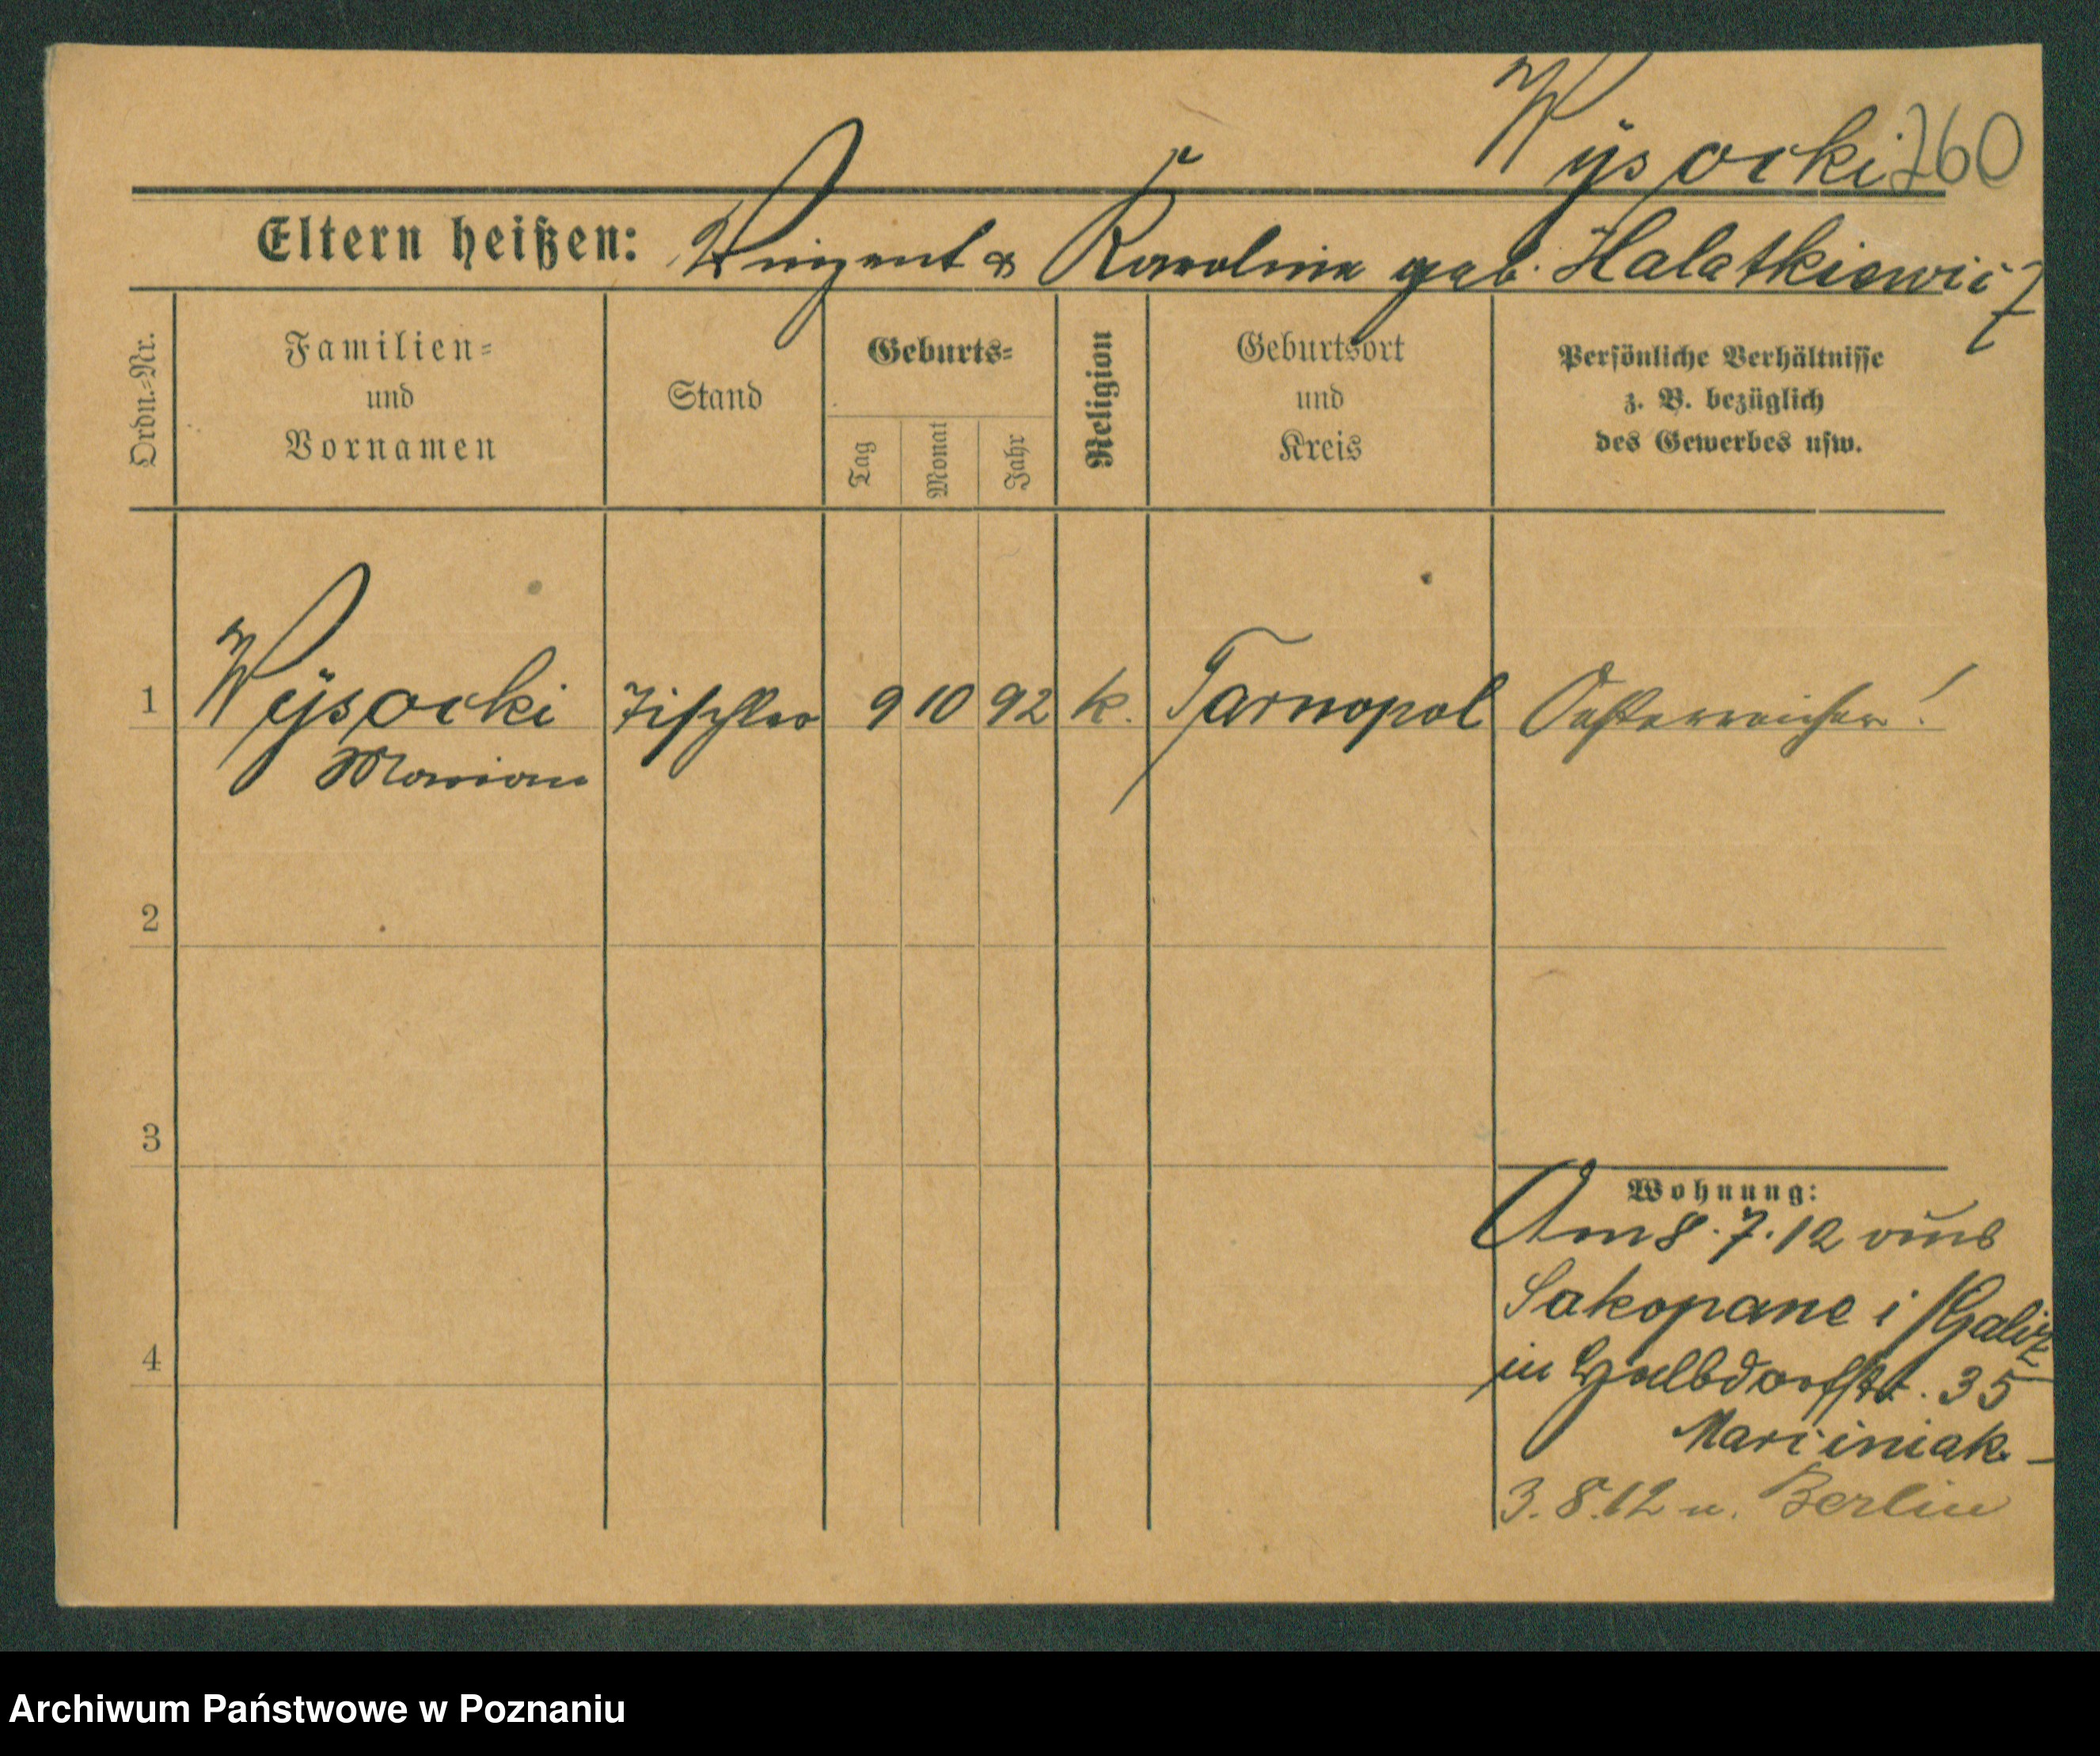 Wysocki 260
Eltern heißen: Vinzent & Karolina geb. Halatkiewicz
Ordn.=Nr.
Familien=
und
Vornamen
Stand
Geburts=
Tag
Monat
Jahr
Religion
Geburtsort
und
Kreis
Persönliche Verhältnisse
z. B. bezüglich
des Gewerbes usw.
1 Wÿsocki Tischler 9 10 92 k. Tarnopol Oesterreicher!
Marian
2
3
4
Wohnung:
Am 8.7.12 aus
Sakopane i/Galiz
in Halbdorfstr. 35
Marciniak
3.8.12 n. Berlin
Archiwum Państwowe w Poznaniu